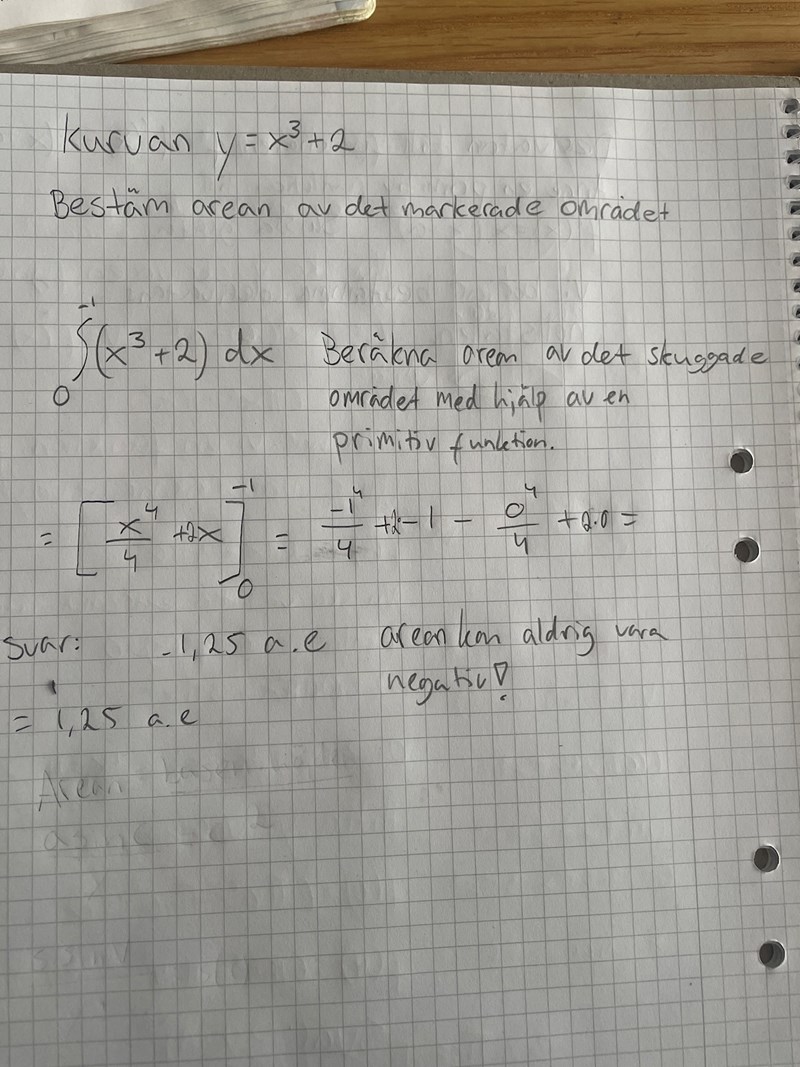 Kurvan y = x³ + 2
Bestäm arean av det markerade området
∫₀⁻¹ (x³ + 2) dx Beräkna arem av det skuggade
området med hjälp av en
primitiv funktion.
= [x⁴/4 + 2x]₀⁻¹ = -1⁴/4 + 2·-1 - 0⁴/4 + 2·0 =
Svar: -1,25 a.e arean kan aldrig vara
negativ!
= 1,25 a.e
Arean